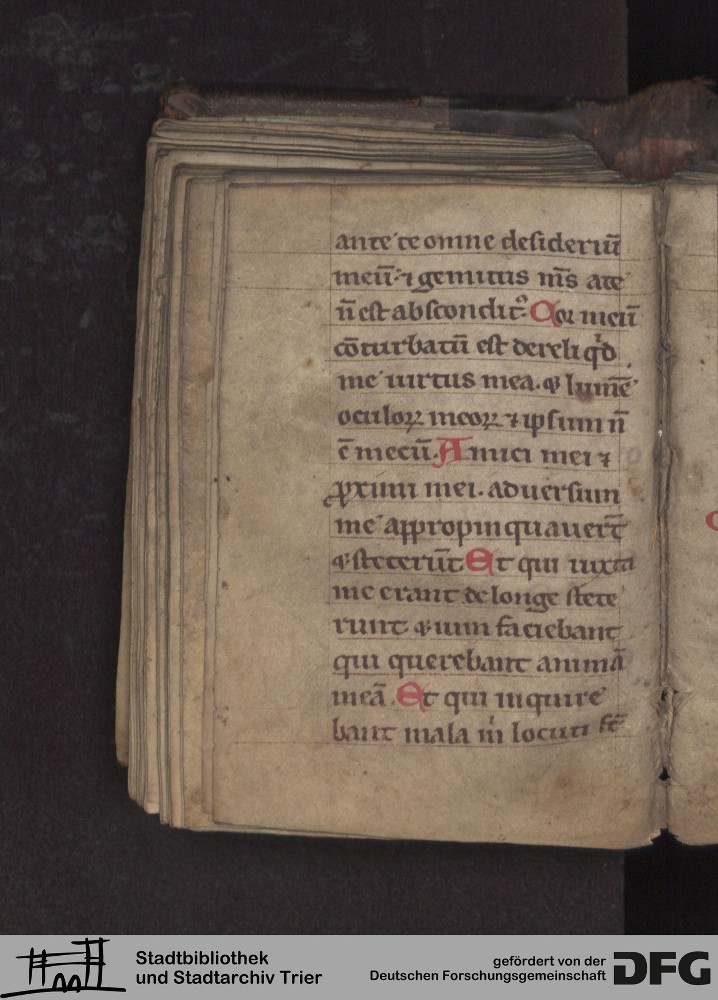 ante te omne desideriū
meū· ⁊ gemitus mͣs ate
n̄ est abscondit᷒· Cor meū
cōturbatū est dereliqͥd
me uirtus mea· ⁊ lumē
oculoꝝ meoꝝ ⁊ ipsum n̄
ē mecū. Amici mei ⁊
ꝓximi mei. aduersum
me appropinquauerūt
⁊ steterūt Et qui iuxta
me erant de longe stete
runt ⁊ uim faciebant
qui querebant animā
meā. Et qui inquire
bant mala m̍ locuti st̄
Stadtbibliothek
und Stadtarchiv Trier
gefördert von der
Deutschen Forschungsgemeinschaft
DFG